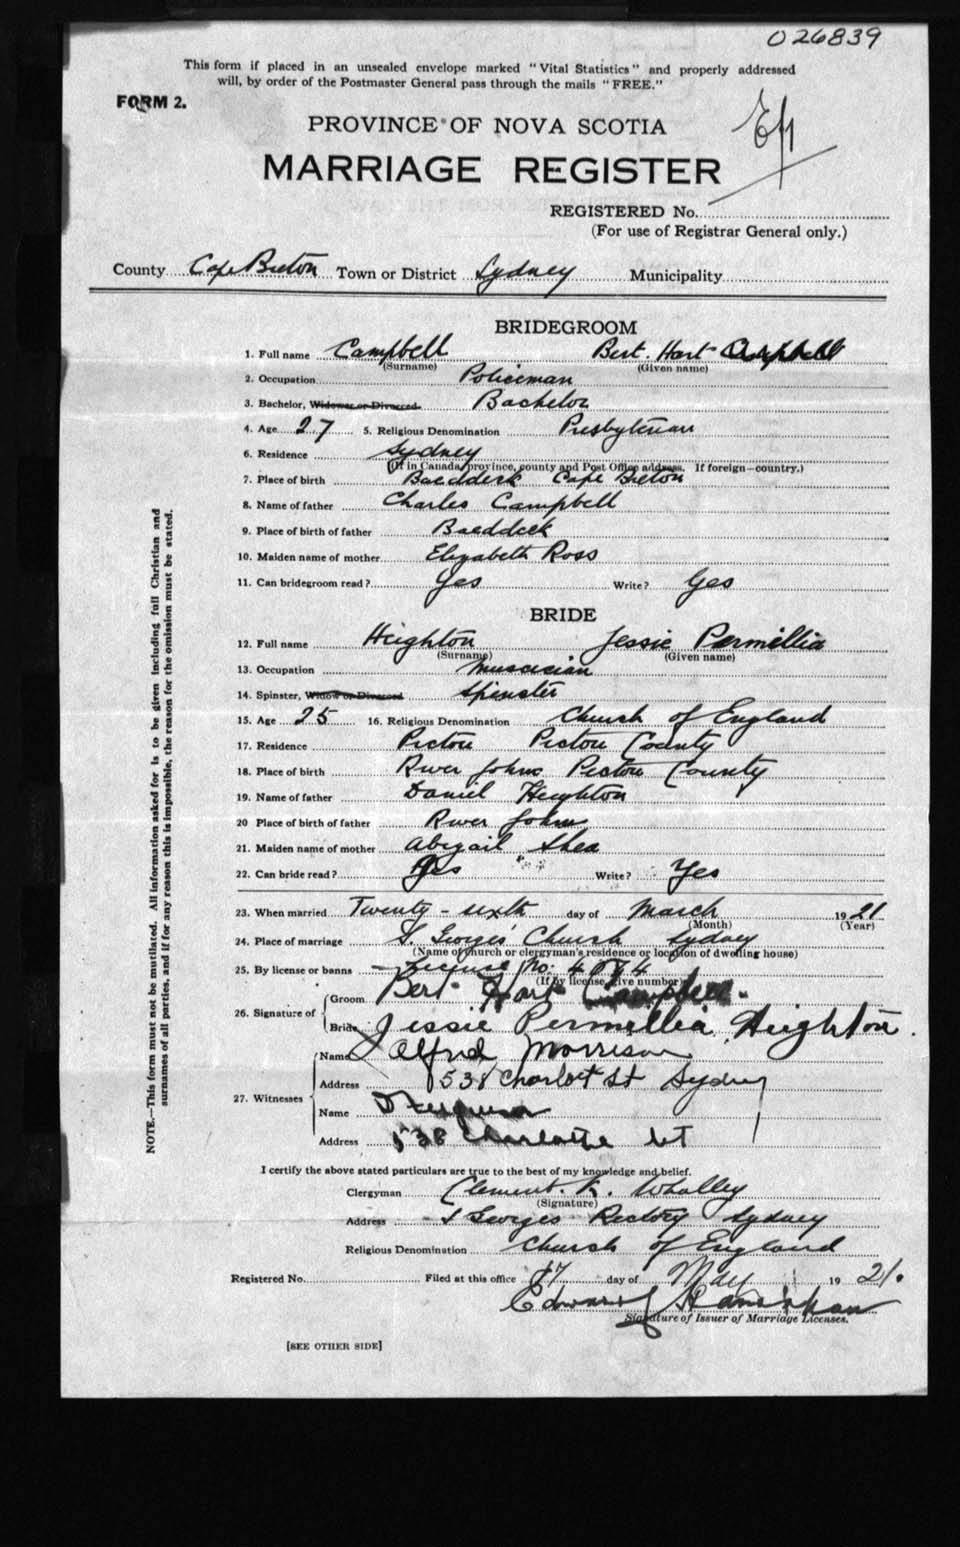 026839
This form if placed in an unsealed envelope marked "Vital Statistics" and properly addressed
will, by order of the Postmaster General pass through the mails "FREE."
FORM 2.
PROVINCE OF NOVA SCOTIA
MARRIAGE REGISTER
REGISTERED No.
(For use of Registrar General only.)
County Cape Breton Town or District Sydney Municipality
BRIDEGROOM
1. Full name Campbell Bert Hart Campbell
(Surname) (Given name)
2. Occupation Policeman
3. Bachelor, Widower or Divorced Bachelor
4. Age 27 5. Religious Denomination Presbyterian
6. Residence Sydney
(If in Canada, province, county and Post Office address. If foreign—country.)
7. Place of birth Baedderk Cape Breton
8. Name of father Charles Campbell
9. Place of birth of father Baeddeck
10. Maiden name of mother Elizabeth Ross
11. Can bridegroom read? Yes Write? Yes
BRIDE
12. Full name Heighton Jessie Permillia
(Surname) (Given name)
13. Occupation Muscician
14. Spinster, Widow or Divorced Spinster
15. Age 25 16. Religious Denomination Church of England
17. Residence Pictou Pictou County
18. Place of birth River John Pictou County
19. Name of father Daniel Heighton
20 Place of birth of father River John
21. Maiden name of mother Abigail Shea
22. Can bride read? Yes Write? Yes
23. When married Twenty-sixth day of March 1921
(Month) (Year)
24. Place of marriage S. Georges' Church Sydney
(Name of church or clergyman's residence or location of dwelling house)
25. By license or banns License No:
(If by license, give number)
26. Signature of
Groom Bert Hart Campbell.
Bride Jessie Permellia Heighton.
27. Witnesses
Name Alfred Morrison
Address 538 Charlott St Sydney
Name
Address 538 Charlotte St
I certify the above stated particulars are true to the best of my knowledge and belief.
Clergyman Clement. K. Whalley
(Signature)
Address S Georges Rectory Sydney
Religious Denomination Church of England
Registered No. Filed at this office 17 day of May 1921.
Edward
Signature of Issuer of Marriage Licenses.
[SEE OTHER SIDE]
NOTE.—This form must not be mutilated. All information asked for is to be given including full Christian and
surnames of all parties, and if for any reason this is impossible, the reason for the omission must be stated.